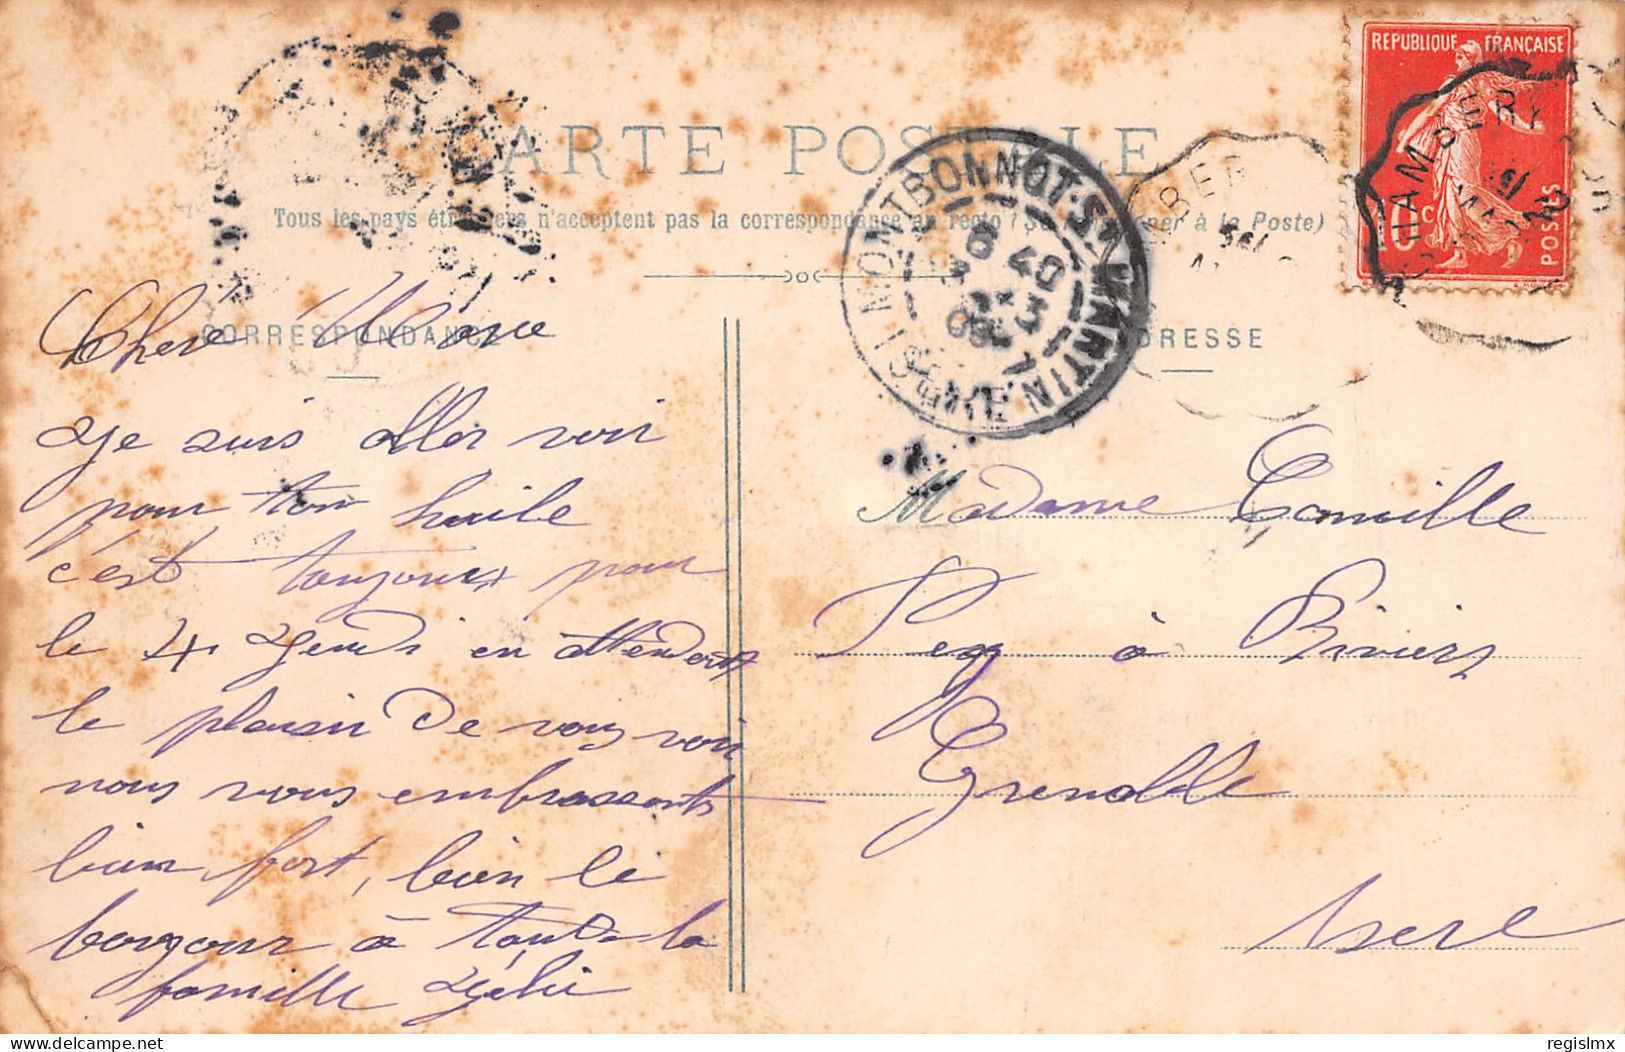 REPUBLIQUE FRANÇAISE
10c
POSTES
CHAMBERY
CARTE POSTALE
Tous les pays étrangers n'acceptent pas la correspondance au recto (Se renseigner à la Poste)
MONTBONNOT-ST MARTIN
ISERE
CORRESPONDANCE
ADRESSE
Chere Marie
Je suis aller voir
pour ton huile
c'est toujours pour
le 4 Jeudi en attendant
le plaisir de vous voir
nous vous embrassont
bien fort, bien le
bonjour à toute la
famille
Madame Camille
Pey à Biviers
Grenoble
Isere
delcampe.net
regislmx